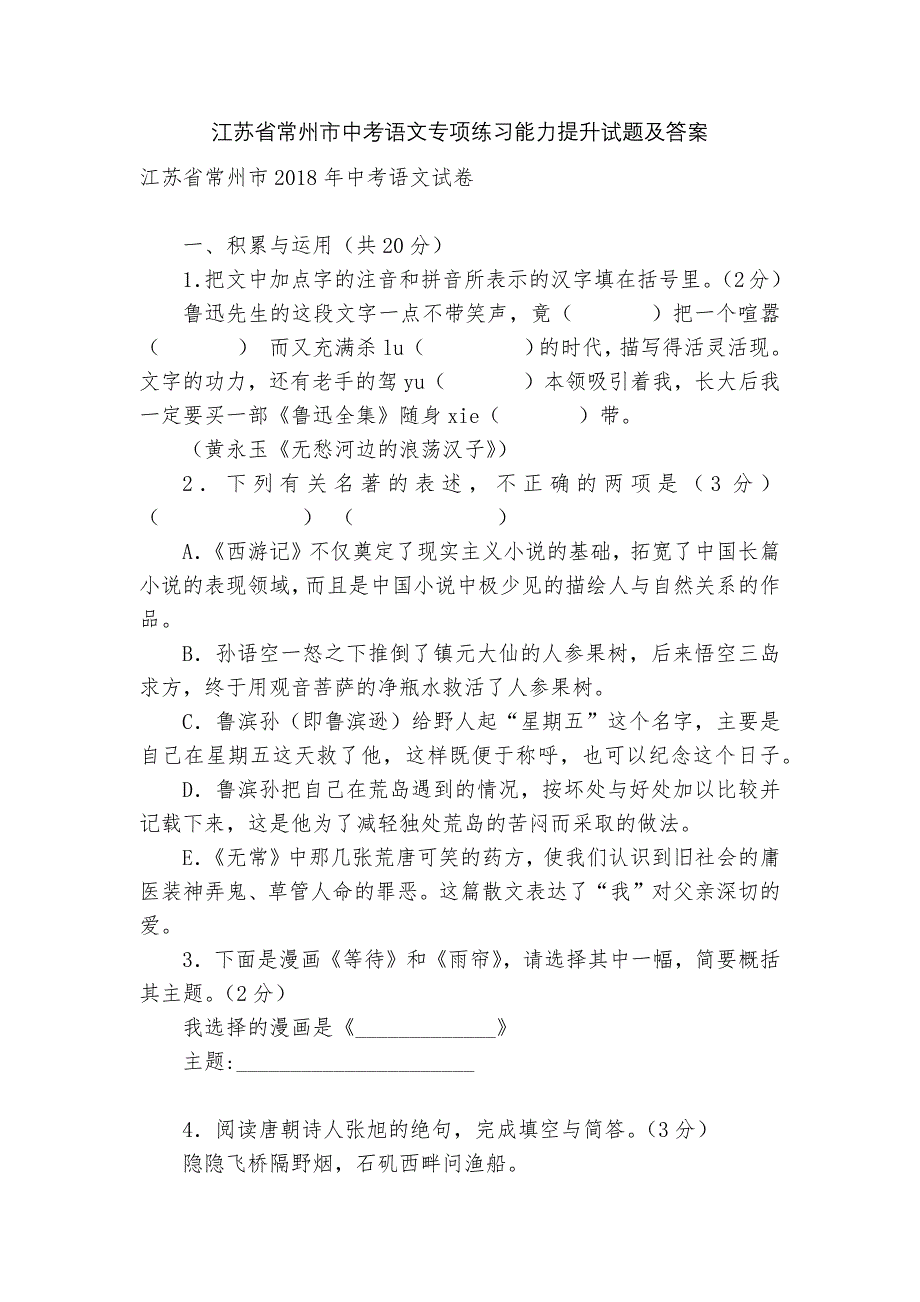 江苏省常州市中考语文专项练习能力提升试题及答案
江苏省常州市 2018 年中考语文试卷
一、积累与运用（共 20 分）
1.把文中加点字的注音和拼音所表示的汉字填在括号里。（2 分）
鲁迅先生的这段文字一点不带笑声，竟（　　　　）把一个喧嚣
（　　　　） 而又充满杀 lu（　　　　）的时代，描写得活灵活现。
文字的功力，还有老手的驾 yu（　　　　）本领吸引着我，长大后我
一定要买一部《鲁迅全集》随身 xie（　　　　）带。
（黄永玉《无愁河边的浪荡汉子》）
2．下列有关名著的表述，不正确的两项是（3 分）
（　　　　　　） （　　　　　　）
A．《西游记》不仅奠定了现实主义小说的基础，拓宽了中国长篇
小说的表现领域，而且是中国小说中极少见的描绘人与自然关系的作
品。
B．孙语空一怒之下推倒了镇元大仙的人参果树，后来悟空三岛
求方，终于用观音菩萨的净瓶水救活了人参果树。
C．鲁滨孙（即鲁滨逊）给野人起“星期五”这个名字，主要是
自己在星期五这天救了他，这样既便于称呼，也可以纪念这个日子。
D．鲁滨孙把自己在荒岛遇到的情况，按坏处与好处加以比较并
记载下来，这是他为了减轻独处荒岛的苦闷而采取的做法。
E．《无常》中那几张荒唐可笑的药方，使我们认识到旧社会的庸
医装神弄鬼、草管人命的罪恶。这篇散文表达了“我”对父亲深切的
爱。
3．下面是漫画《等待》和《雨帘》，请选择其中一幅，简要概括
其主题。（2 分）
我选择的漫画是《_____________》
主题:______________________
4．阅读唐朝诗人张旭的绝句，完成填空与简答。（3 分）
隐隐飞桥隔野烟，石矶西畔问渔船。